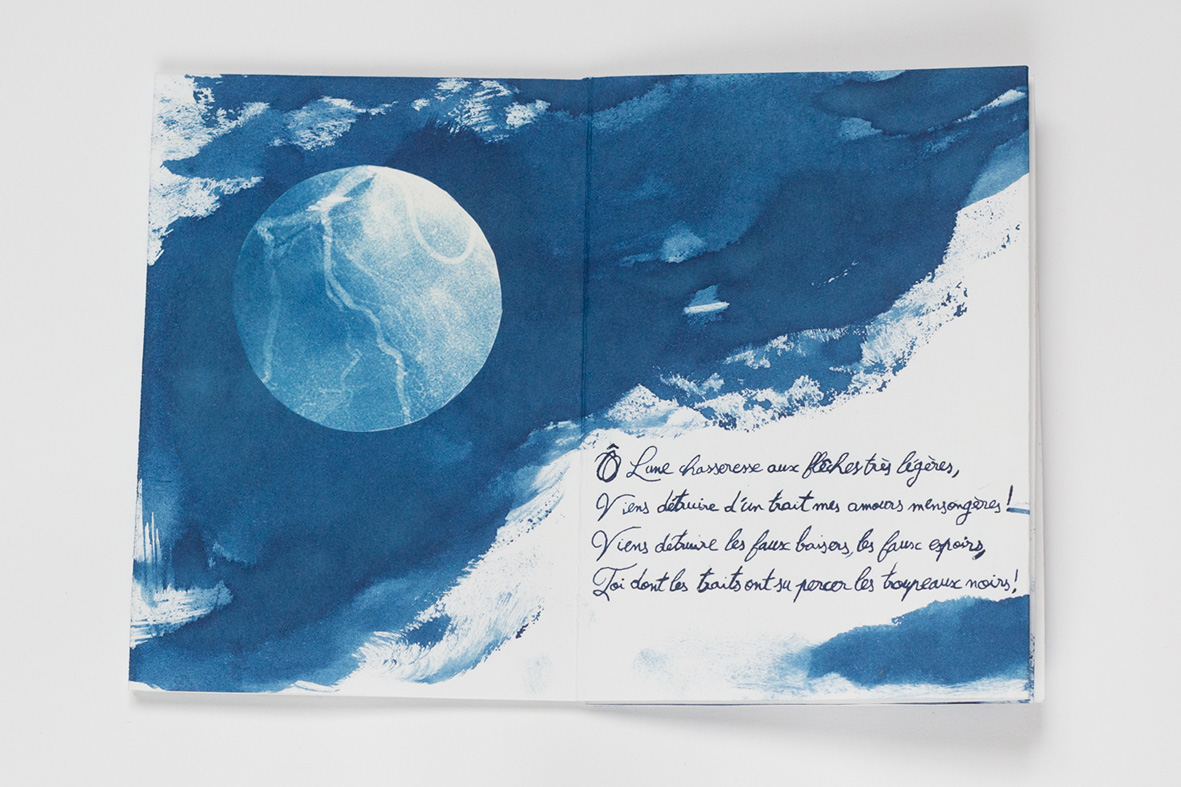 Ô Lune chasseresse aux flèches très légères,
Viens détruire d'un trait mes amours mensongères !
Viens détruire les faux baisers, les faux espoirs,
Toi dont les traits ont su percer les troupeaux noirs !